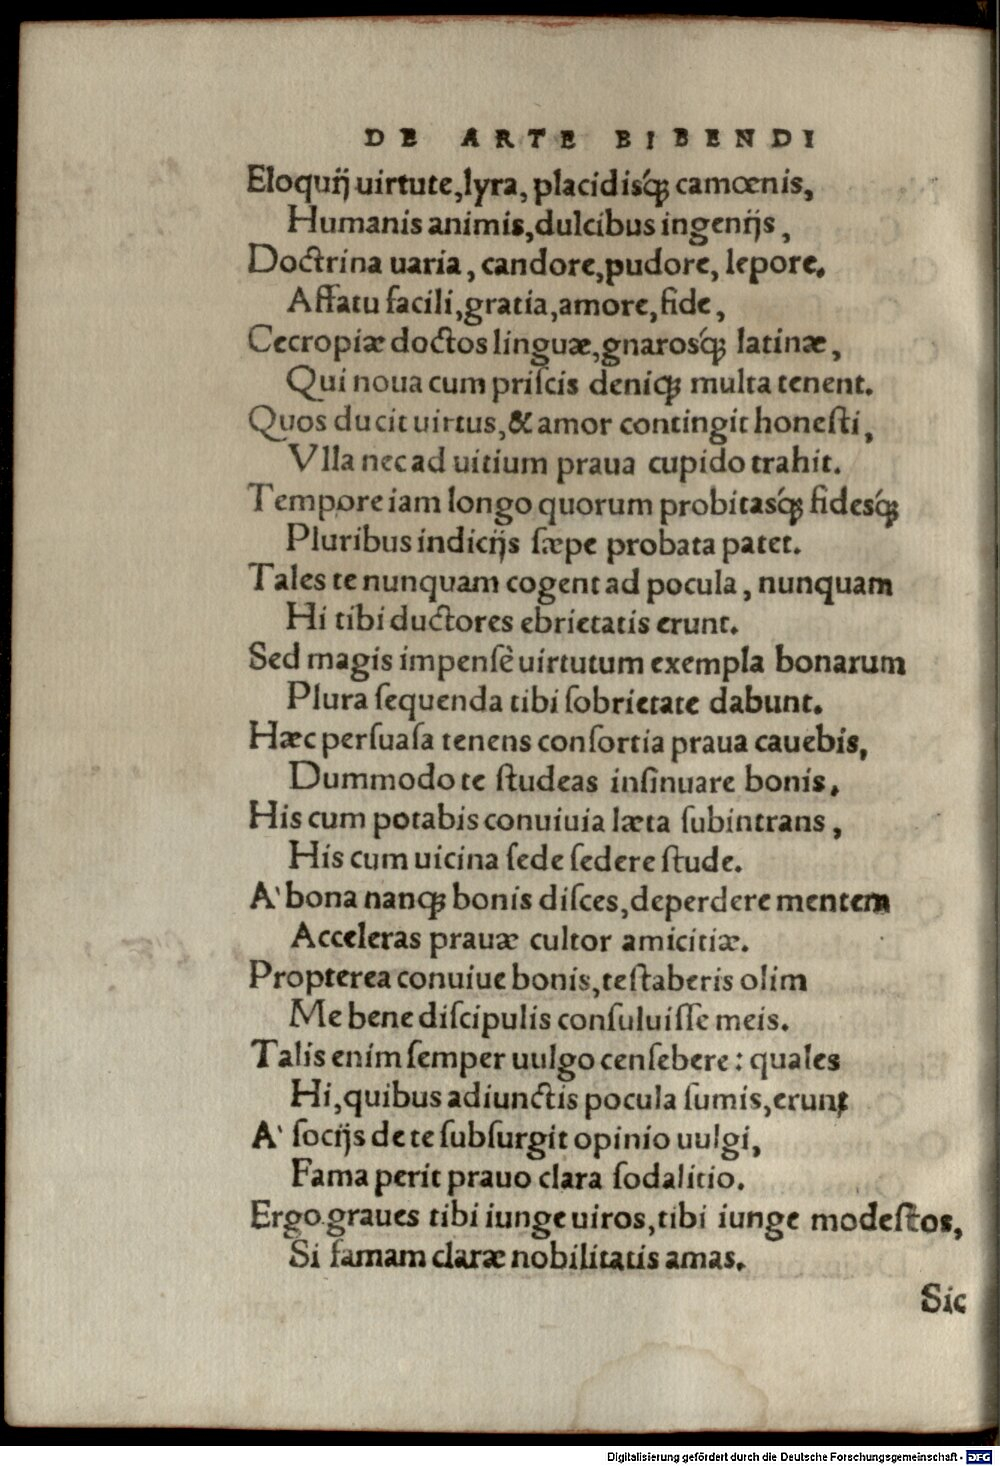 DE ARTE BIBENDI
Eloquij uirtute, lyra, placidisq́ꝫ camœnis,
Humanis animis, dulcibus ingenijs,
Doctrina uaria, candore, pudore, lepore.
Affatu facili, gratia, amore, fide,
Cecropiæ doctos linguæ, gnarosq́ꝫ latinæ,
Qui noua cum priſcis deniqꝫ multa tenent.
Quos ducit uirtus, & amor contingit honeſti,
Vlla nec ad uitium praua cupido trahit.
Tempore iam longo quorum probitasq́ꝫ fidesq́ꝫ
Pluribus indicijs ſæpe probata patet.
Tales te nunquam cogent ad pocula, nunquam
Hi tibi ductores ebrietatis erunt.
Sed magis impenſè uirtutum exempla bonarum
Plura ſequenda tibi ſobrietate dabunt.
Hæc perſuaſa tenens conſortia praua cauebis,
Dummodo te ſtudeas inſinuare bonis.
His cum potabis conuiuia læta ſubintrans,
His cum uicina ſede ſedere ſtude.
A' bona nanqꝫ bonis diſces, deperdere mentem
Acceleras prauæ cultor amicitiæ.
Propterea conuiue bonis, teſtaberis olim
Me bene diſcipulis conſuluiſſe meis.
Talis enim ſemper uulgo cenſebere: quales
Hi, quibus adiunctis pocula ſumis, erunt
A' ſocijs de te ſubſurgit opinio uulgi,
Fama perit prauo clara ſodalitio.
Ergo graues tibi iunge uiros, tibi iunge modeſtos,
Si famam claræ nobilitatis amas.
Sic
Digitalisierung gefördert durch die Deutsche Forschungsgemeinschaft - DFG